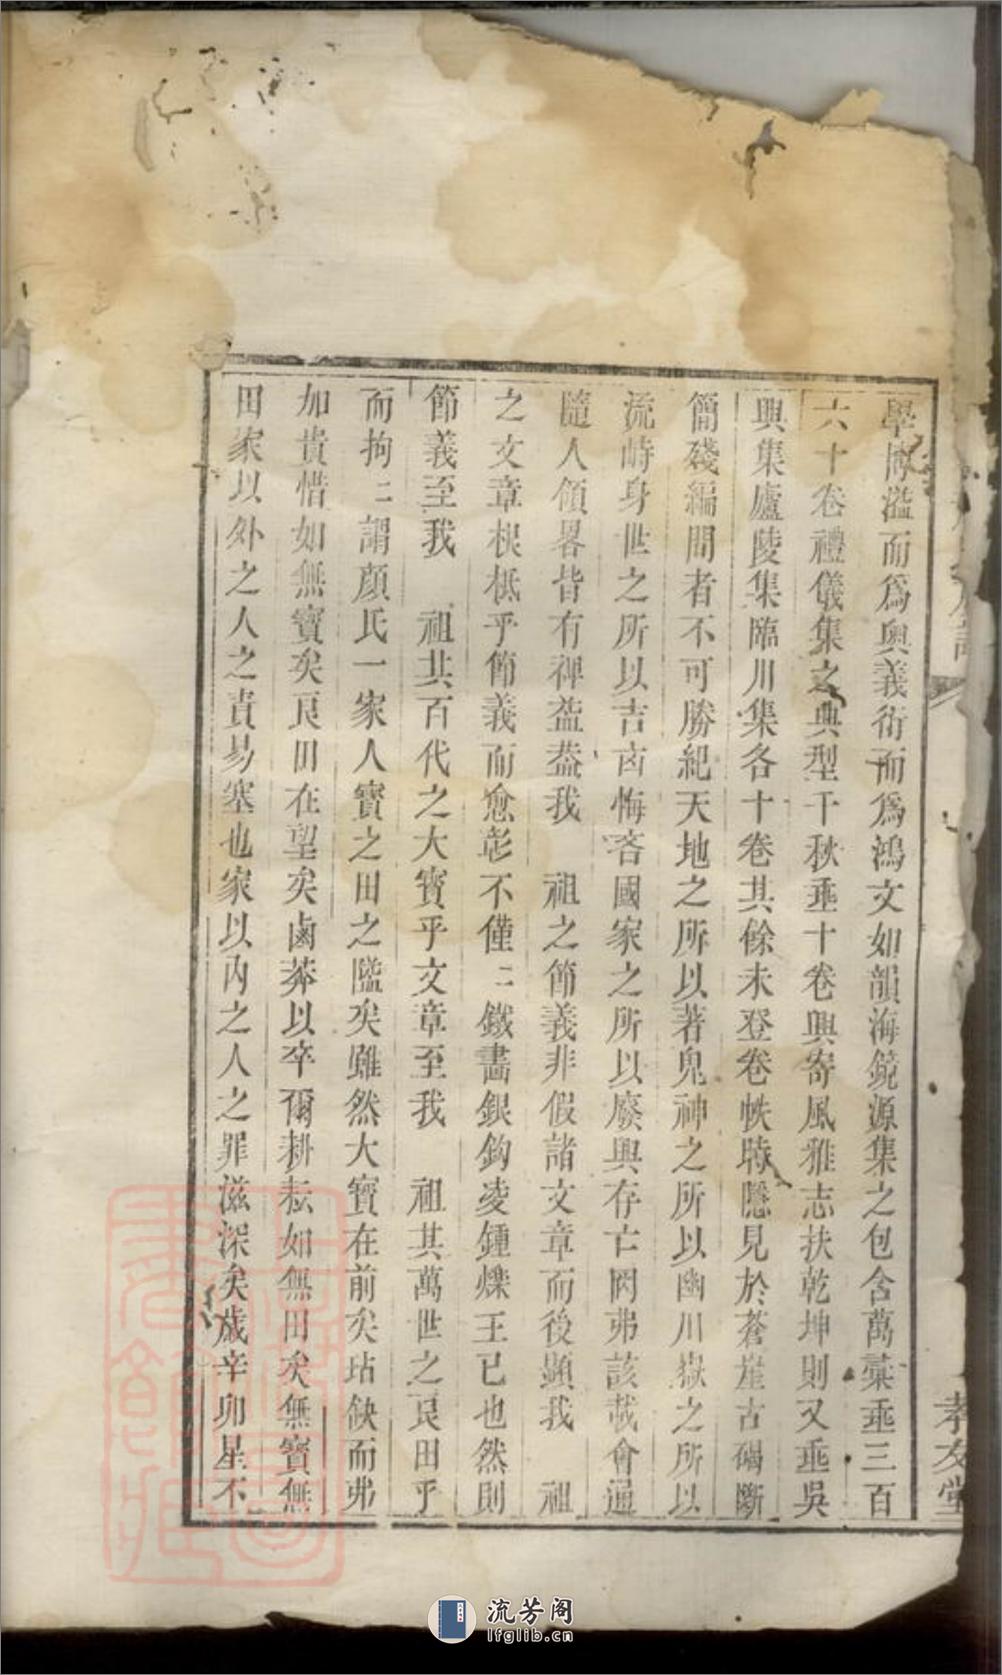 學博溢而爲奧義衍而爲鴻文如韻海鏡源集之包含萬彙垂三百
六十卷禮儀集之典型千秋垂十卷興寄風雅志扶乾坤則又垂吳
興集廬陵集臨川集各十卷其餘未登卷帙時隱見於蒼崖古碣斷
簡殘編間者不可勝紀天地之所以著鬼神之所以幽川嶽之所以
流峙身世之所以吉凶悔吝國家之所以廢興存亡罔弗該載會通
隨人領畧皆有裨益葢我　祖之節義非假諸文章而後顯我　祖
之文章根柢乎節義而愈彰不僅〻鐵畵銀鈎凌鍾爍王已也然則
節義至我　祖共百代之大寳乎文章至我　祖其萬世之良田乎
而拘〻謂顔氏一家人寳之田之隘矣雖然大寳在前矣玷缺而弗
加貴惜如無寳矣良田在望矣鹵莽以卒爾耕耘如無田矣無寳無
田家以外之人之責易塞也家以內之人之罪滋深矣歲辛卯星不
孝友堂
流芳阁
lfglib.cn